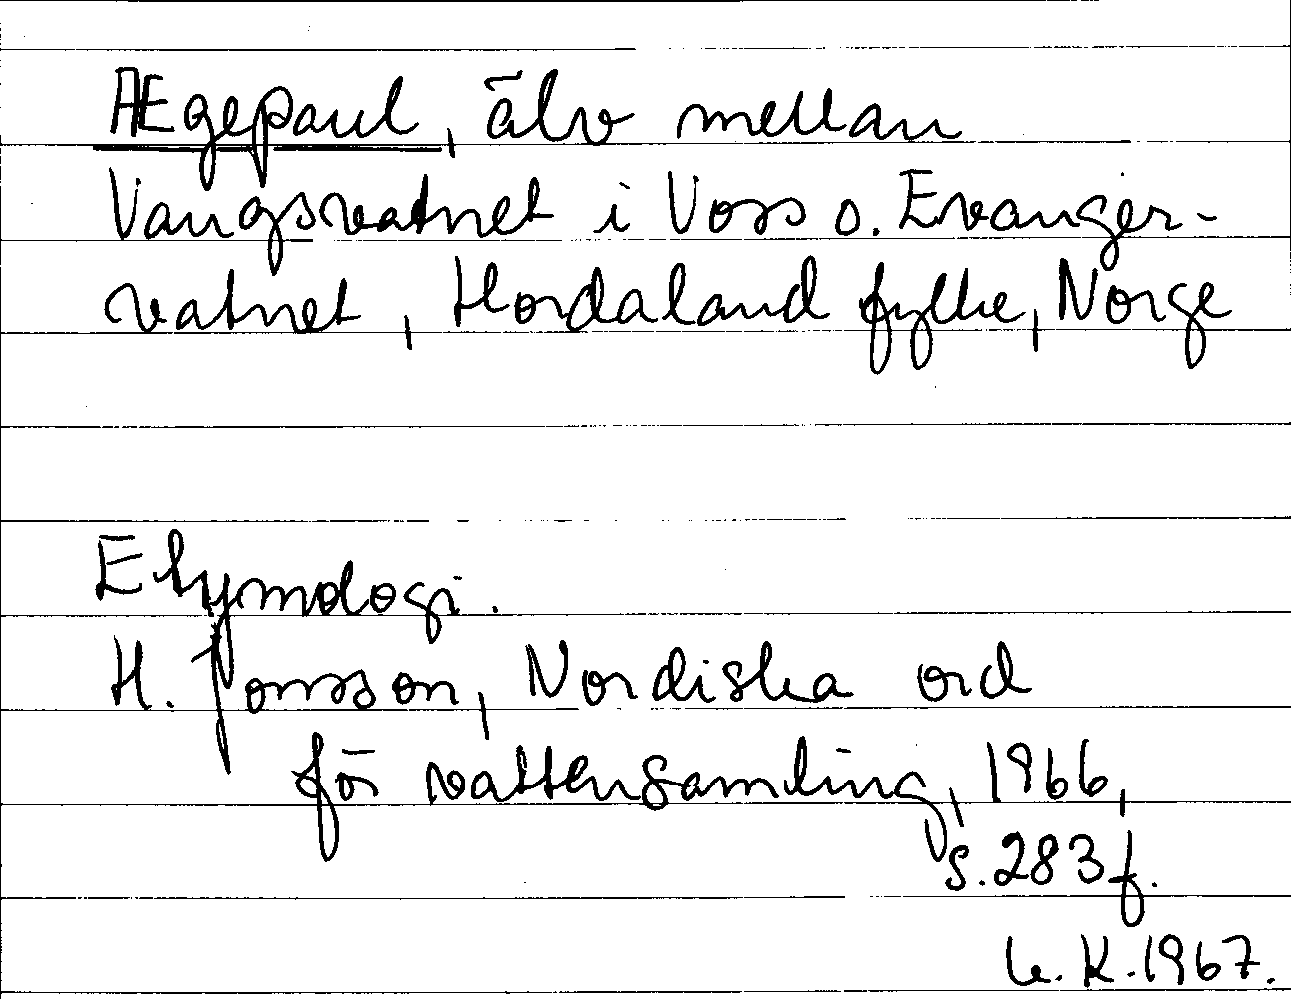 Ægepaul, älv mellan
Vangsvatnet i Voss o. Evanger-
vatnet, Hordaland fylke, Norge
Etymologi.
H. Jonsson, Nordiska ord
för vattensamling, 1966,
s. 283 f.
K. 1967.